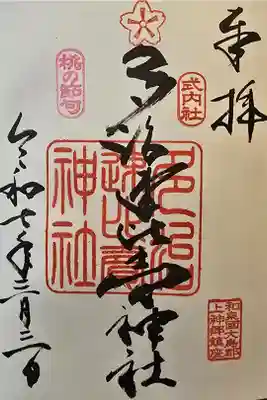 奉拝
式内社
和泉國大鳥郡
上神郷鎮座
多治速比売神社
多治
速比賣
神社
桃の節句
令和七年三月三日